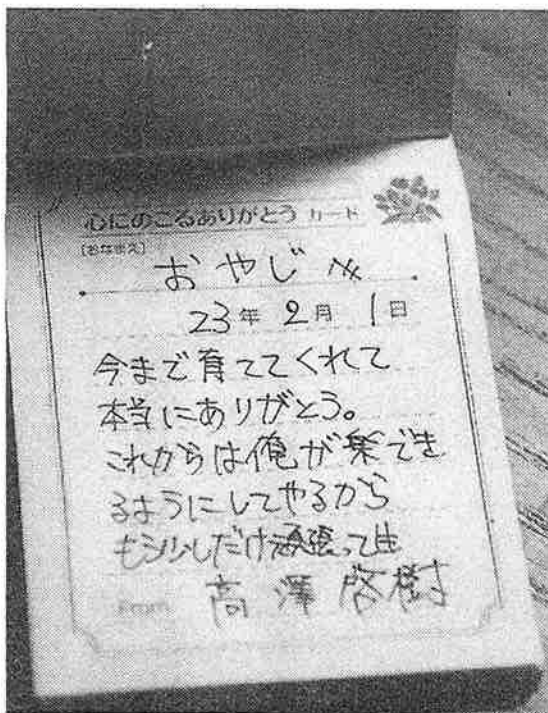 心にのこるありがとう カード
[おなまえ]
おやじ へ
23年 2月 1日
今まで育ててくれて
本当にありがとう。
これからは俺が楽でき
るようにしてやるから
もう少しだけ頑張って
From 高澤啓樹